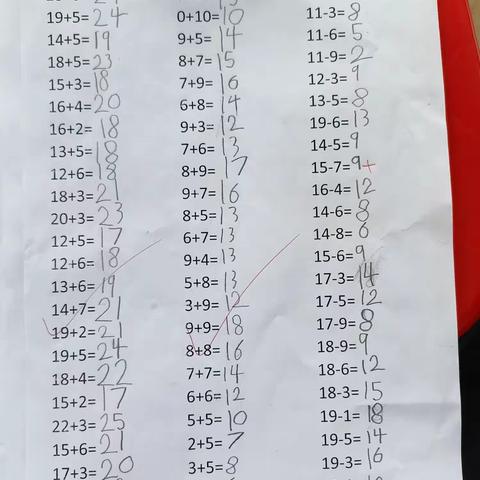 19+5=24
14+5=19
18+5=23
15+3=18
16+4=20
16+2=18
13+5=18
12+6=18
18+3=21
20+3=23
12+5=17
12+6=18
13+6=19
14+7=21
19+2=21
19+5=24
18+4=22
15+2=17
22+3=25
15+6=21
17+3=20
0+10=10
9+5=14
8+7=15
7+9=16
6+8=14
9+3=12
7+6=13
8+9=17
9+7=16
8+5=13
6+7=13
9+4=13
5+8=13
3+9=12
9+9=18
8+8=16
7+7=14
6+6=12
5+5=10
2+5=7
3+5=8
11-3=8
11-6=5
11-9=2
12-3=9
13-5=8
19-6=13
14-5=9
15-7=9+
16-4=12
14-6=8
14-8=6
15-6=9
17-3=14
17-5=12
17-9=8
18-9=9
18-6=12
18-3=15
19-1=18
19-5=14
19-3=16